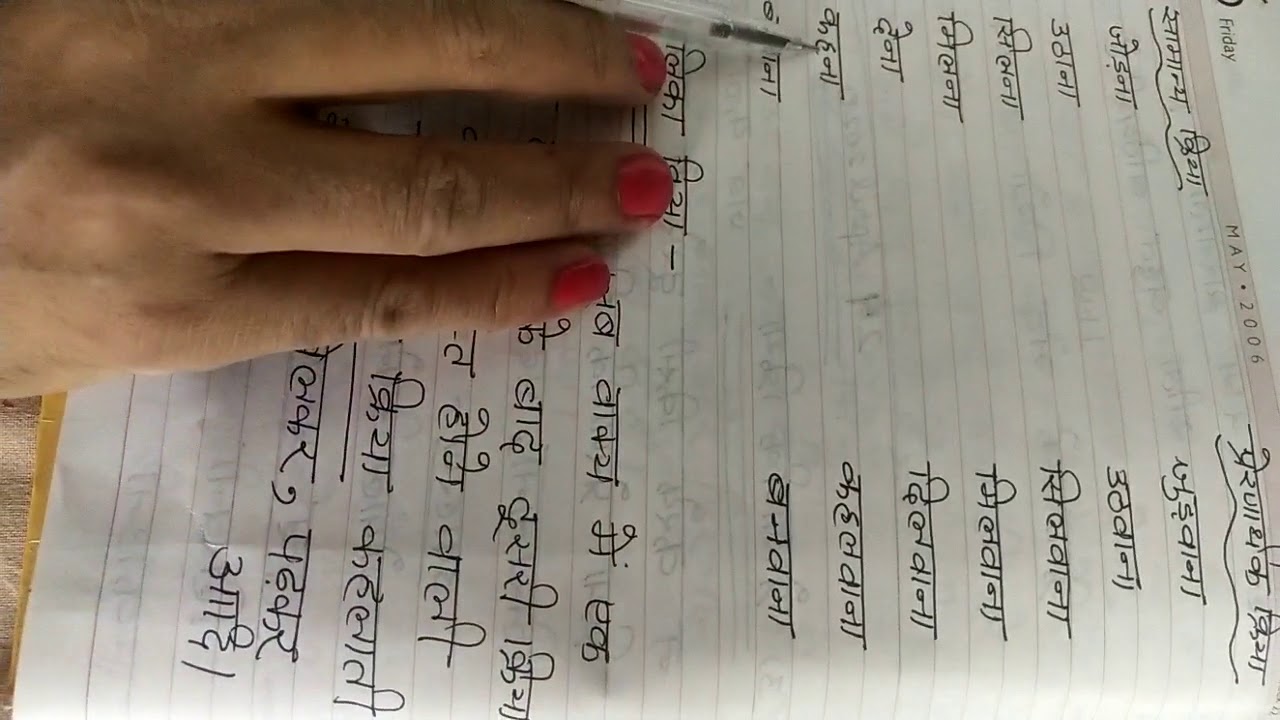 Friday MAY • 2006
सामान्य क्रिया प्रेरणार्थक क्रिया
जोड़ना जुड़वाना
उठाना उठवाना
सिलना सिलवाना
मिलना मिलवाना
देना दिलवाना
कहना कहलवाना
ना बनवाना
लिका क्रिया –
जब वाक्य में एक
के बाद दूसरी क्रिया
होने वाली
क्रिया कहलाती
पढ़कर
आदि।